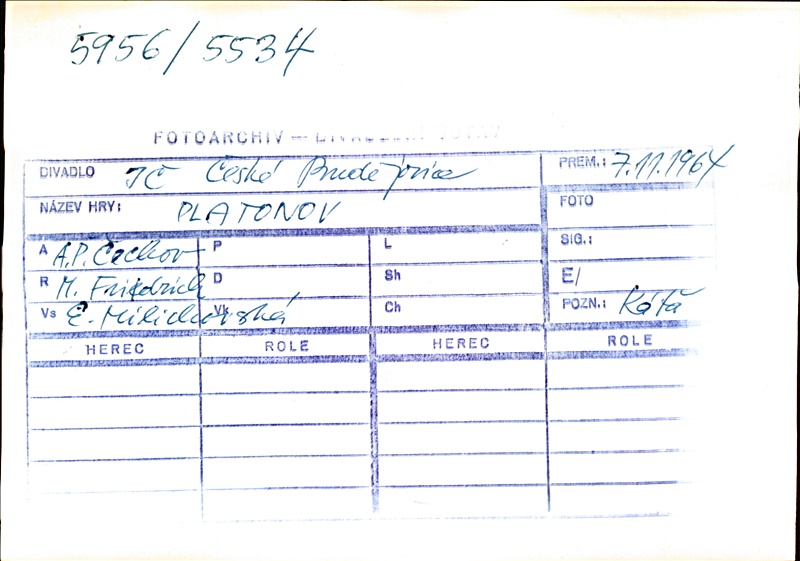 5956/5534
FOTOARCHIV —
DIVADLO JČ České Budějovice PREM.: 7.11.1964
NÁZEV HRY: PLATONOV FOTO
A A.P. Čechov P L SIG.:
R M. Friedrich D Sh E/
Vs E. Milichovská Vk Ch POZN.: Káťa
HEREC ROLE HEREC ROLE